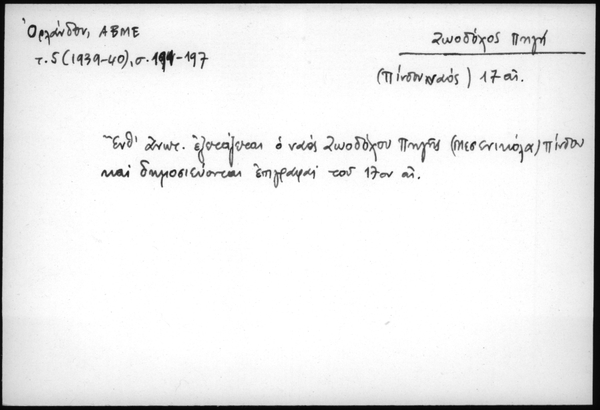 Ὀρλάνδου, ΑΒΜΕ
τ. 5 (1939-40), σ. 191-197
Ζωοδόχος Πηγή
(Πίνδου ναός) 17 αἰ.
Ἔνθ' ἀνωτ. ἐξετάζεται ὁ ναός Ζωοδόχου Πηγῆς (Μεσενικόλα) Πίνδου
καί δημοσιεύονται ἐπιγραφαί τοῦ 17ου αἰ.